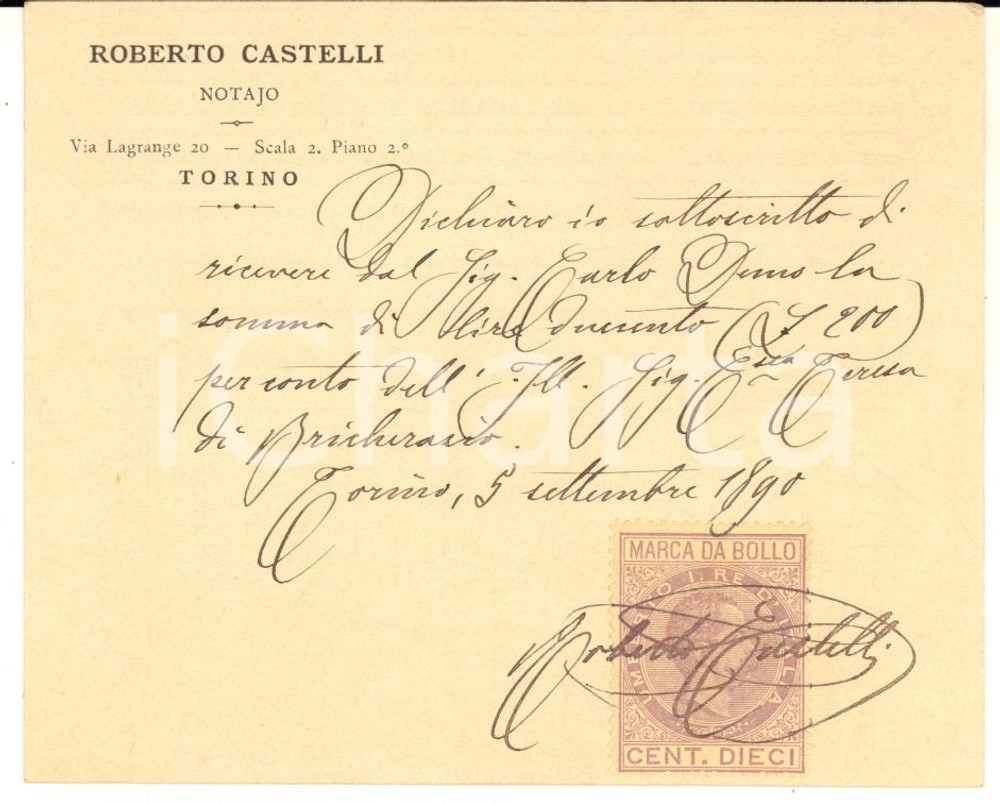 ROBERTO CASTELLI
NOTAJO
Via Lagrange 20 — Scala 2. Piano 2.º
TORINO
Dichiaro io sottoscritto di
ricevere dal Sig. Carlo Demo la
somma di lire duecento (£ 200)
per conto dell' Ill. Sig. Cssa Teresa
di Bricherasio.
Torino, 5 settembre 1890
MARCA DA BOLLO
UMBERTO I. RE D'ITALIA
Roberto Castelli
CENT. DIECI
iCharta